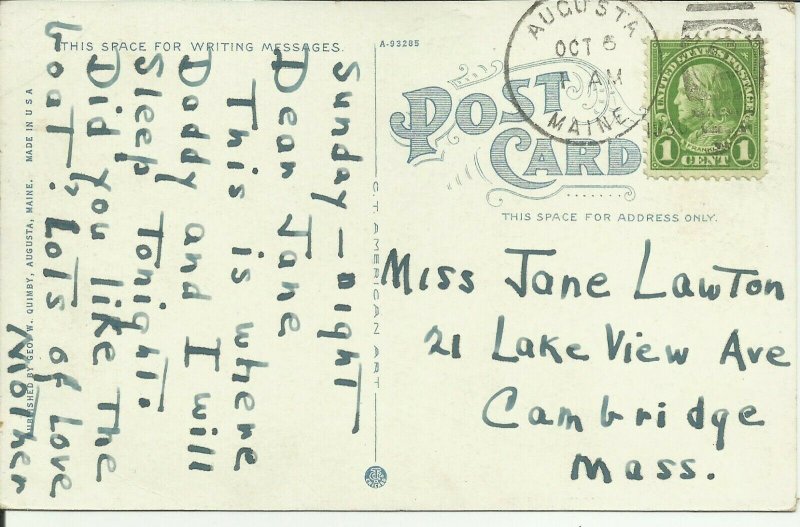 THIS SPACE FOR WRITING MESSAGES.
Sunday - night
Dear Jane
This is where
Daddy and I will
Sleep Tonight.
Did you like the
boat, Lots of Love
Mother
PUBLISHED BY GEO. W. QUIMBY, AUGUSTA, MAINE. MADE IN U S A
A-93285
C. T. AMERICAN ART
POST
CARD
THIS SPACE FOR ADDRESS ONLY.
AUGUSTA
OCT 6
AM
MAINE
UNITED STATES POSTAGE
FRANKLIN
1 CENT 1
Miss Jane Lawton
21 Lake View Ave
Cambridge
Mass.